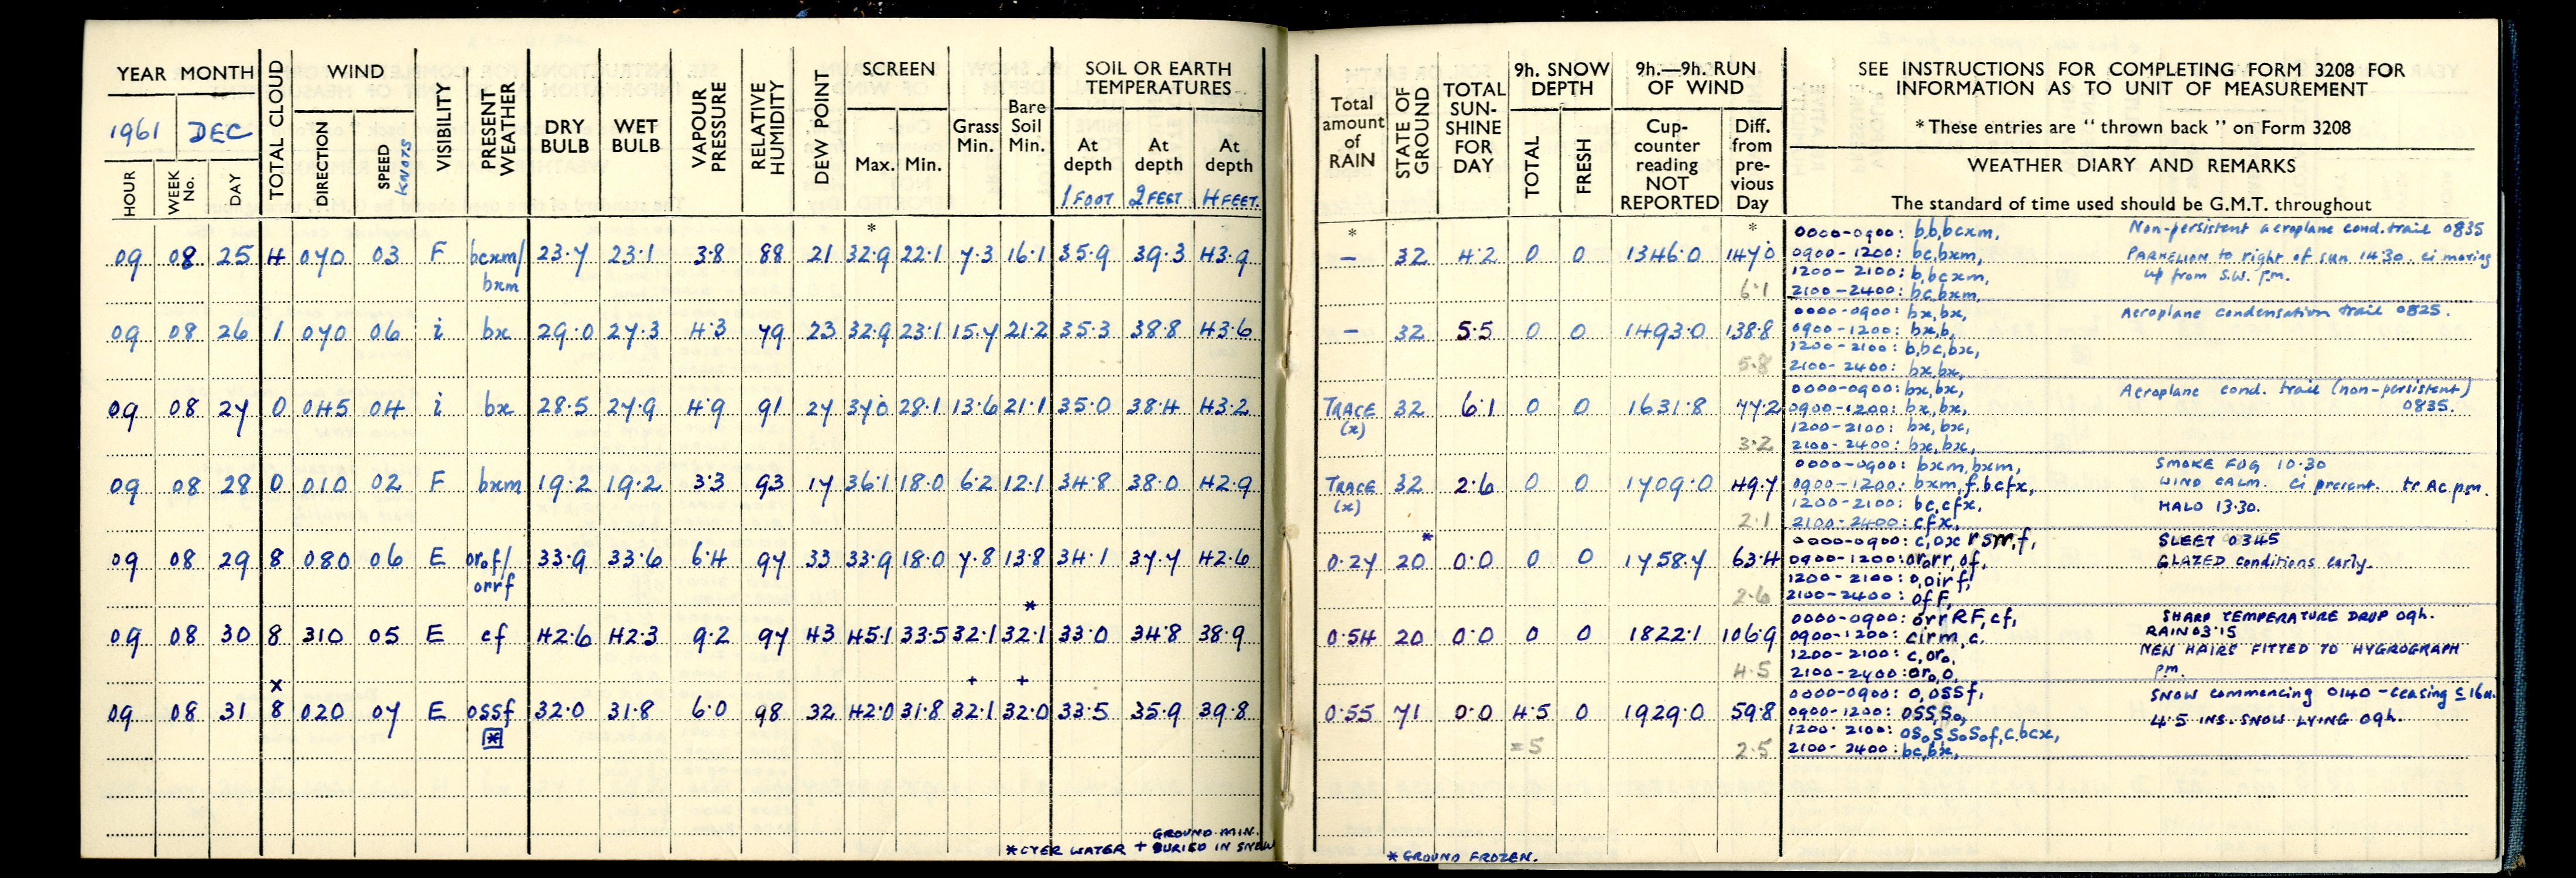 YEAR MONTH TOTAL CLOUD WIND VISIBILITY PRESENT WEATHER DRY BULB WET BULB VAPOUR PRESSURE RELATIVE HUMIDITY DEW POINT SCREEN Grass Min. Bare Soil Min. SOIL OR EARTH TEMPERATURES
1961 DEC
HOUR WEEK No. DAY DIRECTION SPEED KNOTS Max. Min. At depth 1 FOOT At depth 2 FEET At depth 4 FEET
*
09 08 25 4 070 03 F bcxm/ 23.7 23.1 3.8 88 21 32.9 22.1 7.3 16.1 35.9 39.3 43.9
bxm
09 08 26 1 070 06 i bx 29.0 27.3 4.3 79 23 32.9 23.1 15.7 21.2 35.3 38.8 43.6
09 08 27 0 045 04 i bx 28.5 27.9 4.9 91 27 37.0 28.1 13.6 21.1 35.0 38.4 43.2
09 08 28 0 010 02 F bxm 19.2 19.2 3.3 93 17 36.1 18.0 6.2 12.1 34.8 38.0 42.9
09 08 29 8 080 06 E orof/ 33.9 33.6 6.4 97 33 33.9 18.0 7.8 13.8 34.1 37.7 42.6
orrf
*
09 08 30 8 310 05 E cf 42.6 42.3 9.2 97 43 45.1 33.5 32.1 32.1 33.0 34.8 38.9
x + +
09 08 31 8 020 07 E ossf 32.0 31.8 6.0 98 32 42.0 31.8 32.1 32.0 33.5 35.9 39.8
*
GROUND MIN.
* OVER WATER + BURIED IN SNOW
Total amount of RAIN STATE OF GROUND TOTAL SUN-SHINE FOR DAY 9h. SNOW DEPTH 9h.—9h. RUN OF WIND SEE INSTRUCTIONS FOR COMPLETING FORM 3208 FOR
INFORMATION AS TO UNIT OF MEASUREMENT
* These entries are "thrown back" on Form 3208
TOTAL FRESH Cup-counter reading NOT REPORTED Diff. from pre-vious Day WEATHER DIARY AND REMARKS
The standard of time used should be G.M.T. throughout
* *
— 32 4.2 0 0 1346.0 147.0
6.1
0000-0900: b,b,bcxm, Non-persistent aeroplane cond. trail 0835
0900-1200: bc,bxm, PARHELION to right of sun 1430. ci moving
1200-2100: b,bcxm, up from S.W. p.m.
2100-2400: bc,bxm,
— 32 5.5 0 0 1493.0 138.8
5.8
0000-0900: bx,bx, Aeroplane condensation trail 0825.
0900-1200: bx,b,
1200-2100: b,bc,bx,
2100-2400: bx,bx,
TRACE 32 6.1 0 0 1631.8 77.2
(x) 3.2
0000-0900: bx,bx, Aeroplane cond. trail (non-persistent)
0900-1200: bx,bx, 0835.
1200-2100: bx,bx,
2100-2400: bx,bx,
TRACE 32 2.6 0 0 1709.0 49.7
(x) 2.1
0000-0900: bxm,bxm, SMOKE FOG 10.30
0900-1200: bxm,f,bcfx, WIND CALM. Ci present. tr Ac p.m.
1200-2100: bc,cfx, HALO 13.30.
2100-2400: cfx,
*
0.27 20 0.0 0 0 1758.7 63.4
2.6
0000-0900: c,ox SLEET 0345
0900-1200: ororr,of, GLAZED conditions early.
1200-2100: o,oirf,
2100-2400: ofF,
0.54 20 0.0 0 0 1822.1 106.9
4.5
0000-0900: orrRF,cf, SHARP TEMPERATURE DROP 09h.
0900-1200: cirm,c. RAIN 03.15
1200-2100: c,oro, NEW HAIRS FITTED TO HYGROGRAPH
2100-2400: oro,o, p.m.
0.55 71 0.0 4.5 0 1929.0 59.8
=5 2.5
0000-0900: o,ossf, SNOW commencing 0140 - ceasing
0900-1200: oss,so, 4.5 INS. SNOW LYING 09h.
1200-2100: osossosof,c,bcx,
2100-2400: bc,bx,
* GROUND FROZEN.